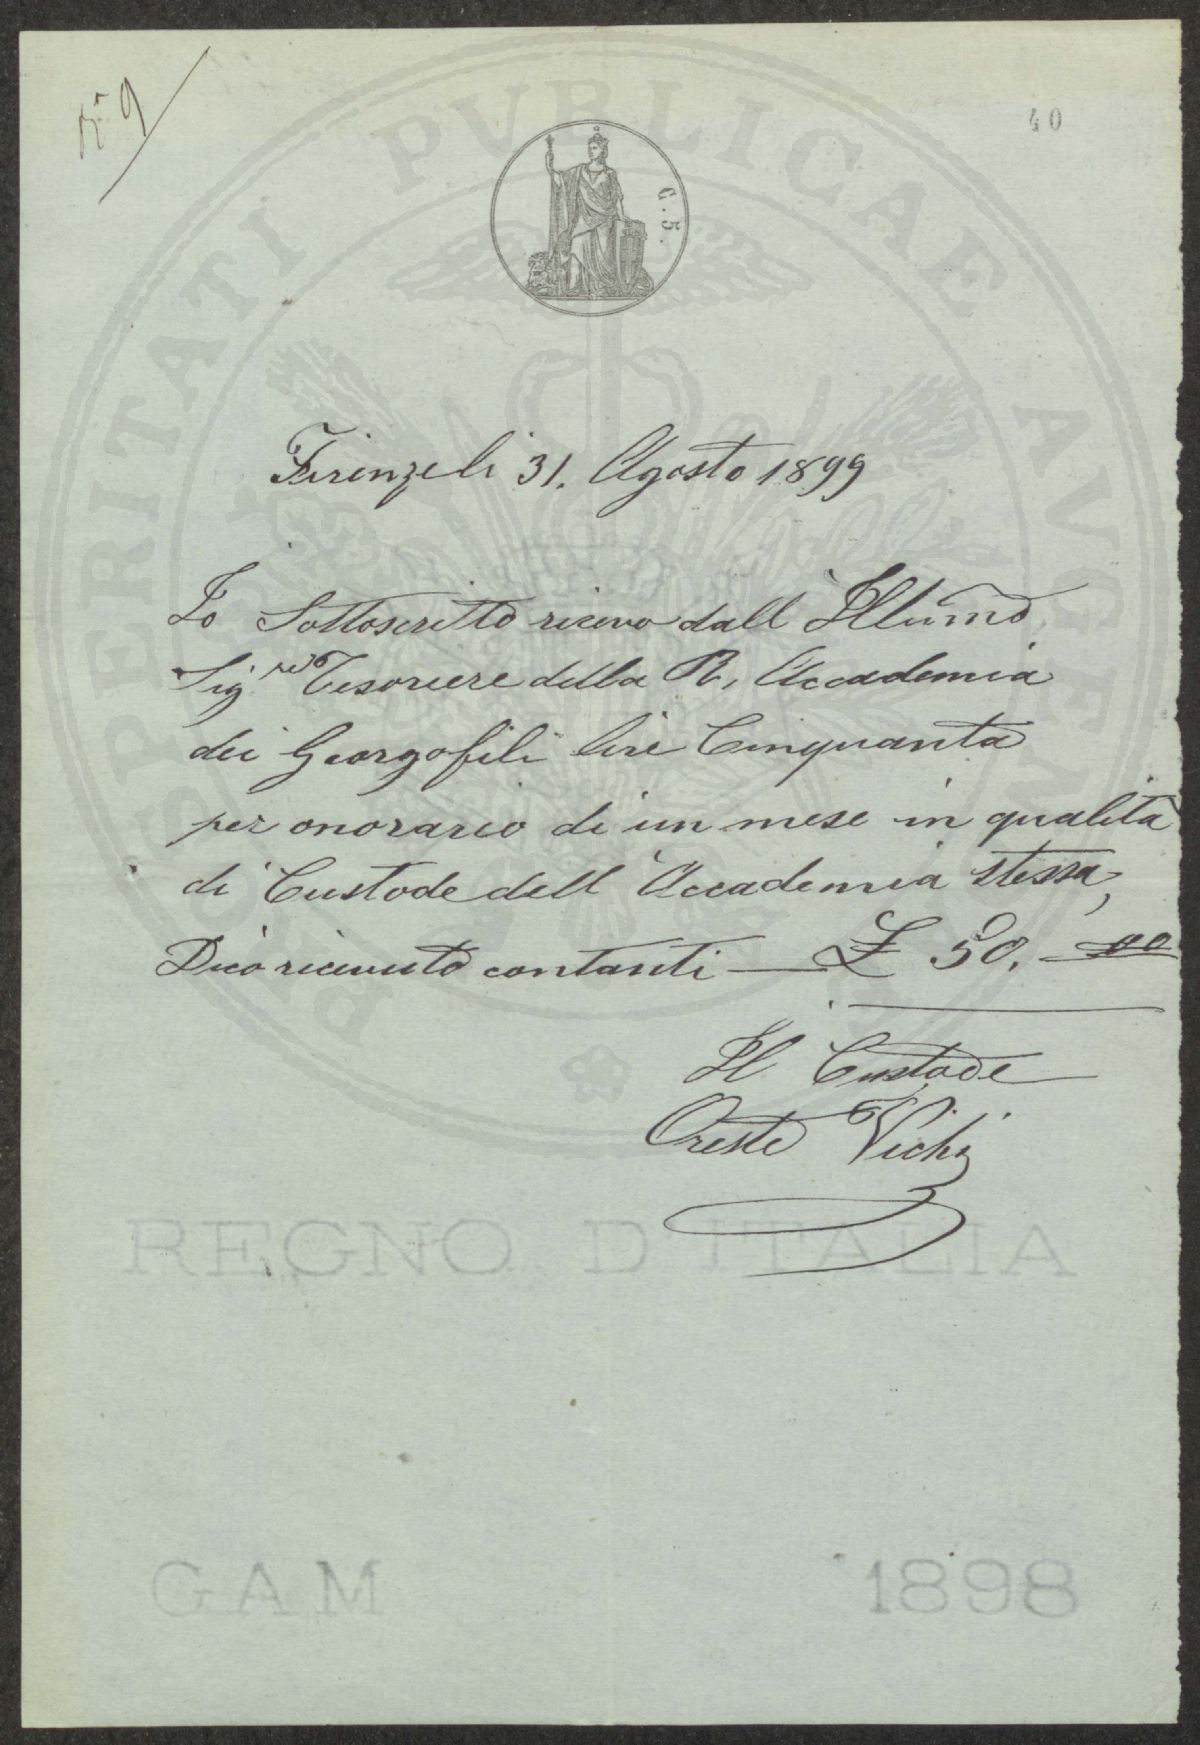 N° 9
40
G. 5.
PROSPERITATI PVBLICAE AVGENDAE
Firenze li 31. Agosto 1899
Io Sottoscritto ricevo dall' Illumo
Sigre Tesoriere della R. Accademia
dei Georgofili lire Cinquanta
per onorario di un mese in qualità
di Custode dell' Accademia stessa,
Dico ricevuto contanti — £ 50. 00
Il Custode
Oreste Vichi
REGNO D'ITALIA
GAM 1898